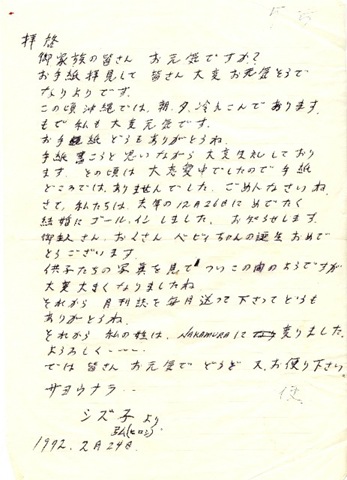 拝啓
御家族の皆さん お元気ですか?
お手紙拝見して 皆さん大変お元気そうで
なによりです。
この頃沖縄では、朝、夕、冷えこんであります。
もで私も大変元気です。
お手紙 どうもありがとうね。
手紙書こうと思いながら大変失礼しており
ます。その頃は大恋愛中でしたので手紙
どころではありませんでした。ごめんなさいね
さて、私たちは、去年の12月26日にめでたく
結婚にゴールインしました。お知らせします。
御主人さん、おくさん ベビィちゃんの誕生おめで
とうございます。
供子たちの写真を見て ついこの間のようですが
大変大きくなりましたね
それから 月刊誌を毎月送って下さってどうも
ありがとうね。
それから 私の姓は、NAKAMURAに変りました。
よろしく……
では皆さん お元気で どうぞ 又、お便り下さい
サヨウナラ..
シズ子 より
弘(ヒロシ)
1972.2月24日.